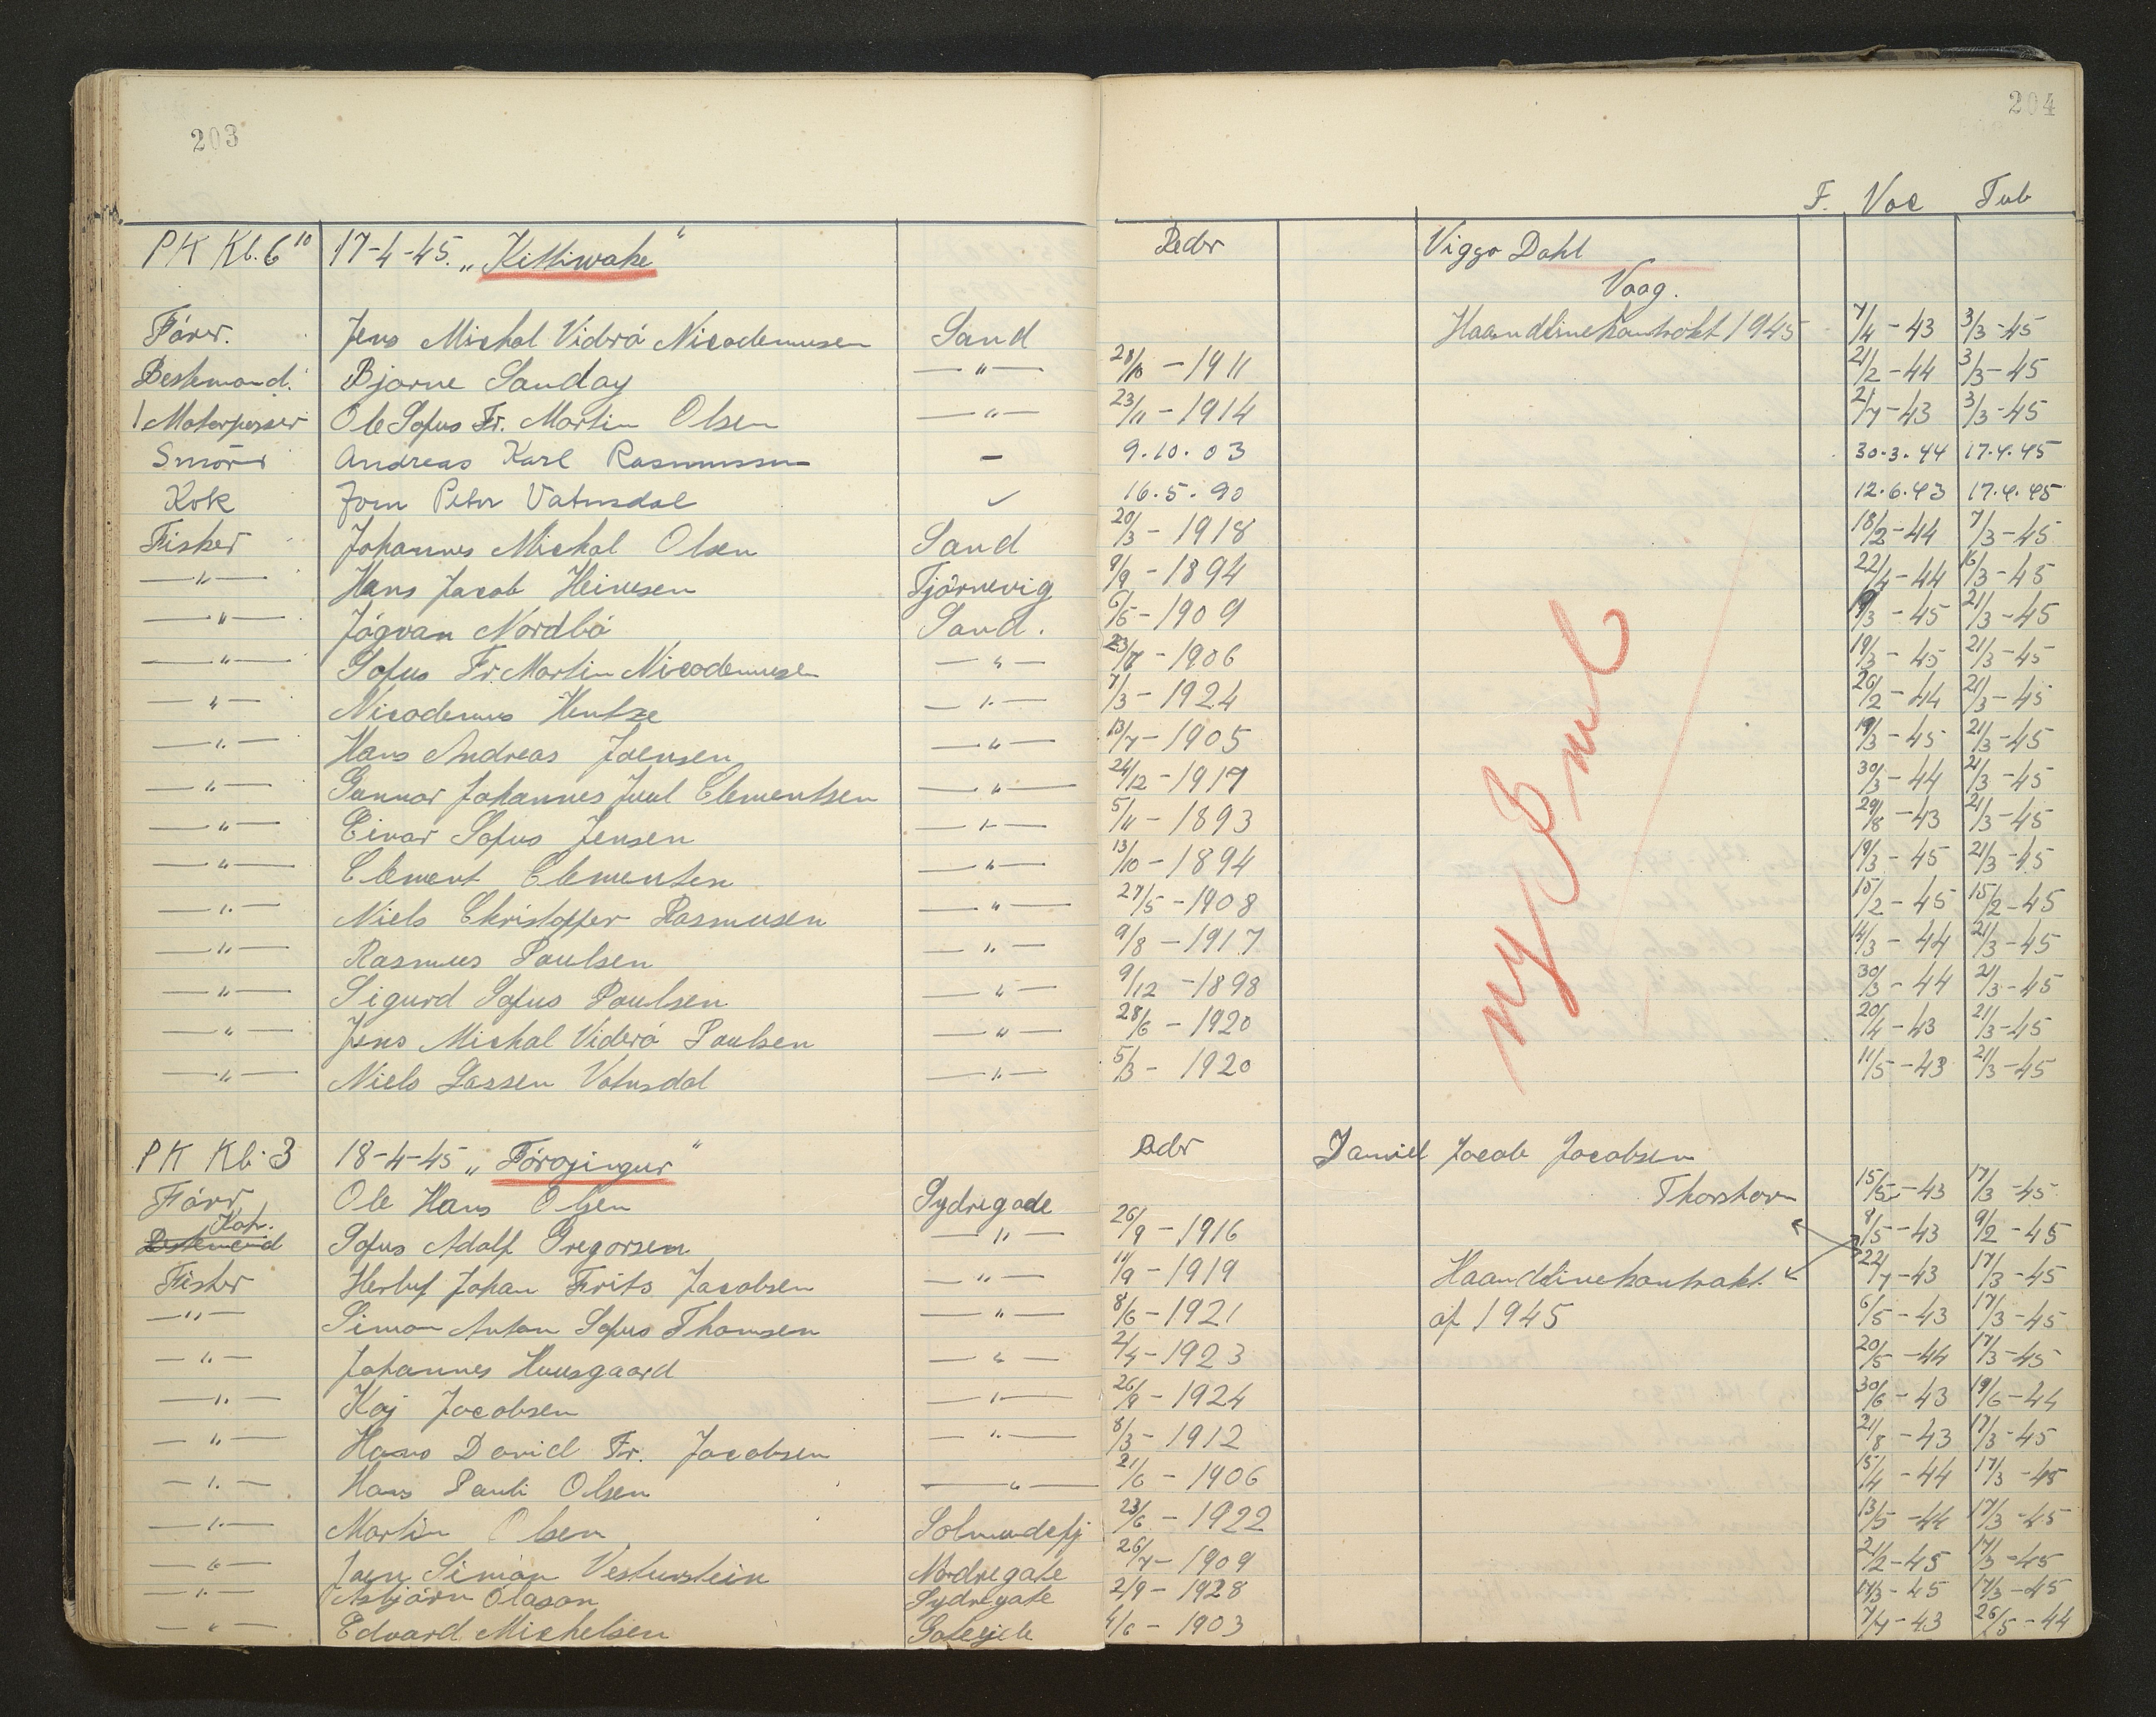 203
204
F. Vac Tub
PK Kl. 6¹⁰ 17-4-45. „Kittiwake“ Redr Viggo Dahl
Vaag.
Förer. Jens Michal Viderö Nicodemusen Sand Haandlinekontrakt 1945 7/4-43 3/3-45
Bestmand. Bjarne Sanday —"— 28/10-1911 21/2-44 3/3-45
1 Motorpasser Ole Sofus Fr. Martin Olsen —"— 23/11-1914 2/7-43 3/3-45
Smörer Andreas Karl Rasmussen — 9.10.03 30.3.44 17.4.45
Kok Joen Peter Vatnsdal ✓ 16.5.90 12.6.43 17.4.45
Fisker Johannes Michal Olsen Sand 20/3-1918 18/2-44 7/3-45
—"— Hans Jacob Heinesen Tjörnevig 9/9-1894 22/4-44 16/3-45
—"— Jógvan Nordbö Sand. 6/5-1909 19/3-45 21/3-45
—"— Sofus Fr. Martin Nicodemusen —"— 23/7-1906 19/3-45 21/3-45
—"— Nicodemus Hentze —"— 7/3-1924 26/2-44 21/3-45
—"— Hans Andreas Joensen —"— 13/7-1905 19/3-45 21/3-45
—"— Gunnar Johannes Juul Clementsen —"— 24/12-1917 30/3-44 21/3-45
—"— Einar Sofus Jensen —"— 5/11-1893 29/8-43 21/3-45
—"— Clement Clementsen —"— 13/10-1894 19/3-45 21/3-45
—"— Niels Christoffer Rasmusen —"— 27/5-1908 15/2-45 15/2-45
—"— Rasmus Paulsen —"— 9/8-1917 14/3-44 21/3-45
—"— Sigurd Sofus Poulsen —"— 9/12-1898 30/3-44 21/3-45
—"— Jens Michal Viderö Paulsen —"— 28/6-1920 20/4-43 21/3-45
—"— Niels Lassen Vatnsdal —"— 5/3-1920 11/5-43 21/3-45
PK Kl. 3 18-4-45 „Föroyingur“ Redr Daniel Jacob Jacobsen
Förer Ole Hans Olsen Sydregade Thorshavn 15/5-43 17/3-45
Bestemand Sofus Adolf Gregorsen —"— 26/9-1916 8/5-43 9/2-45
Fisker Herluf Johan Frits Jacobsen —"— 11/9-1919 Haandlinekontrakt 22/7-43 17/3-45
—"— Simon Anton Sofus Thomsen —"— 8/6-1921 af 1945 6/5-43 17/3-45
—"— Johannes Huusgaard —"— 2/4-1923 20/5-44 17/3-45
—"— Kaj Jacobsen —"— 26/9-1924 30/6-43 19/6-44
—"— Hans David Fr. Jacobsen —"— 8/3-1912 21/8-43 17/3-45
—"— Hans Pauli Olsen —"— 21/6-1906 15/4-44 17/3-45
—"— Martin Olsen Solmundefj 23/6-1922 13/5-44 17/3-45
—"— Joen Simon Vesturstein Nordregate 26/7-1909 21/2-45 17/3-45
—"— Asbjörn Olason Sydregate 2/9-1928 17/3-45 17/3-45
—"— Edvard Michelsen Gotegjele 4/6-1903 7/7-43 26/5-44